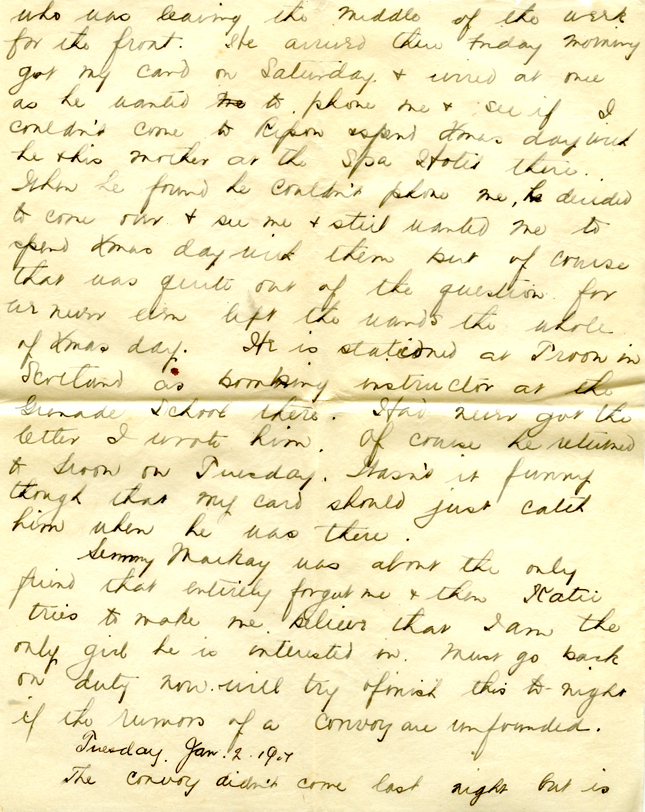 who was leaving the middle of the week
for the front. He arrived there Friday morning
got my card on Saturday & wired at once
as he wanted to phone me & see if I
couldn't come to Ripon & spend Xmas day with
he & his mother at the Spa Hotel there.
When he found he couldn't phone me, he decided
to come our & see me & still wanted me to
spend Xmas day with them but of course
that was quite out of the question for
we never even left the wards the whole
of Xmas day. He is stationed at Troon in
Scotland as bombing instructor at the
Grenade School there. Had never got the
letter I wrote him. Of course he returned
to Troon on Tuesday. Wasn't it funny
though that my card should just catch
him when he was there.
Mackay was about the only
friend that entirely forgot me & then Katie
tries to make me believe that I am the
only girl he is interested in. Must go back
on duty now. will try & finish this to-night
if the rumors of a convoy are unfounded.
Tuesday. Jan. 2.
The convoy didn't come last night but is